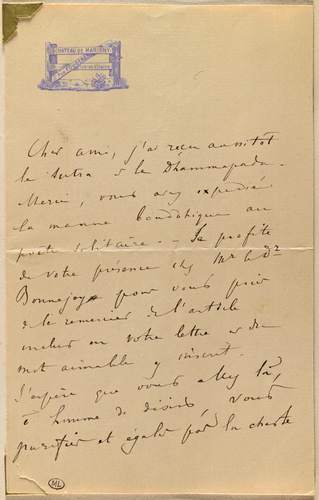 CHATEAU DE MARIGNY
PAR FOUGÈRES
Cher ami, j'ai reçu aussitot
le Sutra & le Dhammapada -
Merci, vous avez expédié
la manne bouddhique au
poète solitaire. - Je profite
de votre présence chez Mr le Dr
Bonnejoy pour vous prier
de le remercier de l'article
inclus en votre lettre & du
mot aimable y inscrit.
J'espère que vous allez là,
ô homme de désirs, vous
purifier et égaler par la chaste
ML